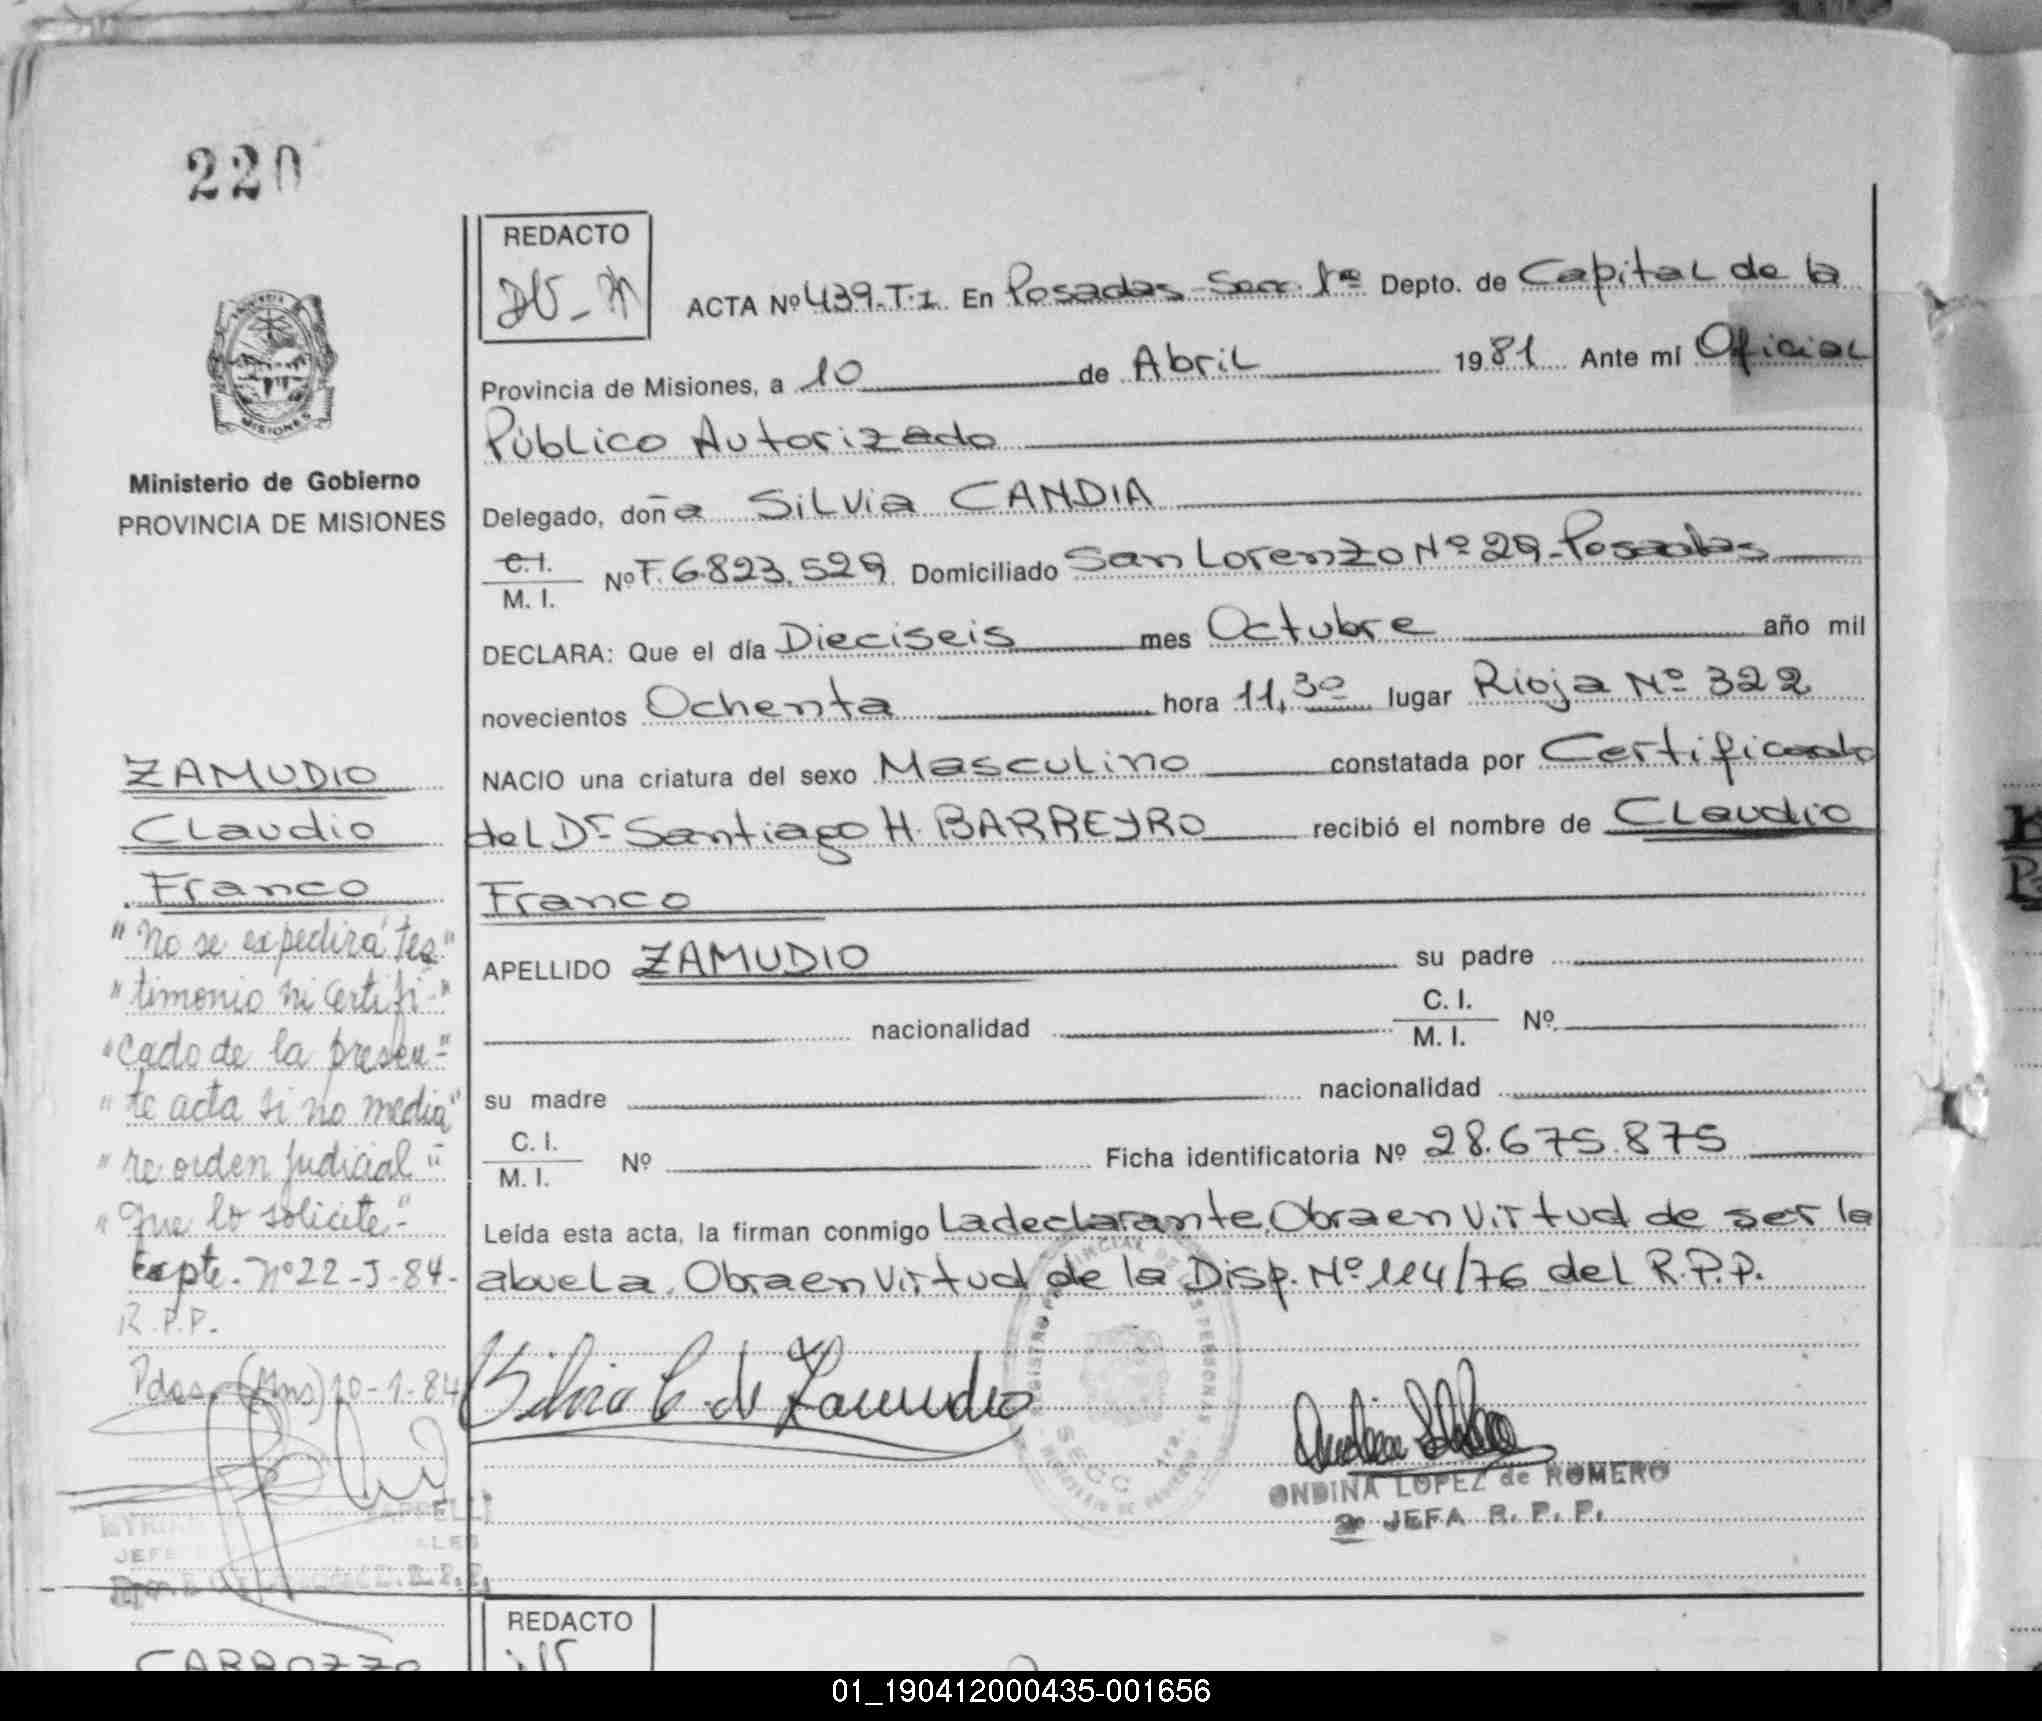 220
REDACTO
ACTA Nº 439-T.1. En Posadas Secc. 1ª Depto. de Capital de la
Provincia de Misiones, a 10 de Abril 1981 Ante mí Oficial
Público Autorizado
Delegado, doña Silvia CANDIA
C.I. M. I. Nº F. 6.823.529 Domiciliado San Lorenzo Nº 29-Posadas
DECLARA: Que el día Dieciseis mes Octubre año mil
novecientos Ochenta hora 11,30 lugar Rioja Nº 322
NACIO una criatura del sexo Masculino constatada por Certificado
del Dr Santiago H. BARREYRO recibió el nombre de Claudio
Franco
APELLIDO ZAMUDIO su padre
nacionalidad C. I. M. I. Nº
su madre nacionalidad
C. I. M. I. Nº Ficha identificatoria Nº 28.675.875
Leída esta acta, la firman conmigo La declarante, Obra en Virtud de ser la
abuela. Obra en Virtud de la Disp. Nº 114/76 del R.P.P.
Silvia C. de Zamudio
ONDINA LOPEZ de ROMERO
JEFA R. P. P.
MISIONES
Ministerio de Gobierno
PROVINCIA DE MISIONES
ZAMUDIO
Claudio
Franco
"No se expedirá tes"
"timonio ni certifi-"
"cado de la presen-"
"te acta si no media"
"re orden judicial"
"que lo solicite-"
Expte. Nº 22-J-84-
R.P.P.
Pdas. (Mns) 10-1-84
REDACTO
CARROZZO
01_190412000435-001656